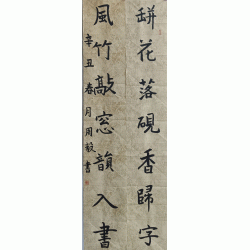 缾花落硯香歸字
風竹敲窓韻入書
辛丑春月周毅書